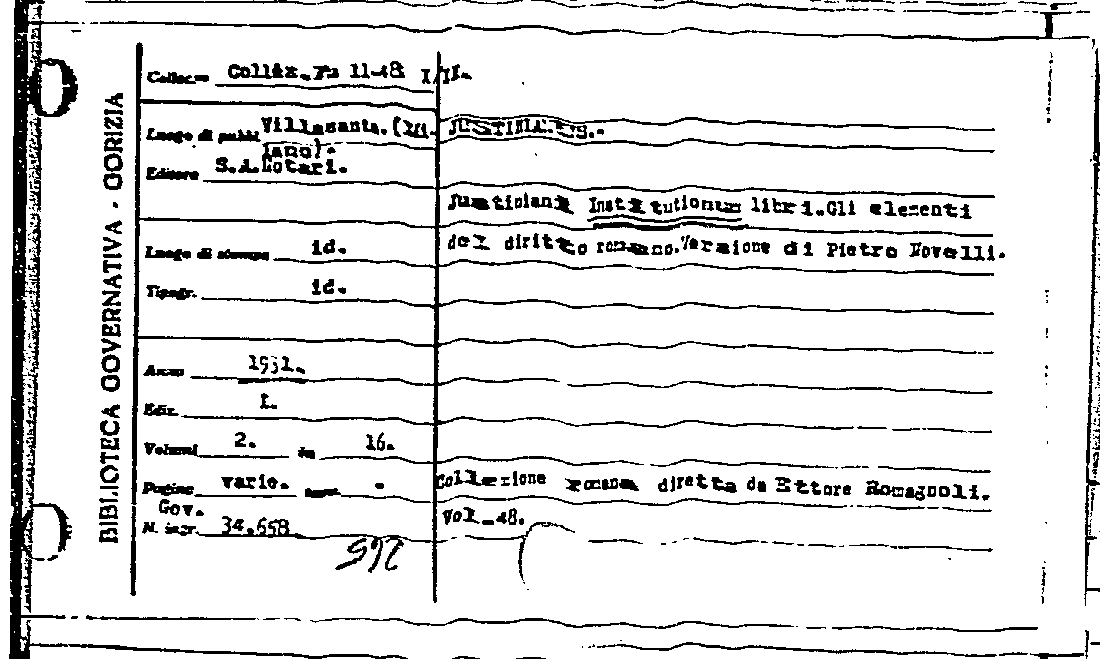 BIBLIOTECA GOVERNATIVA - GORIZIA
Colloc.ne Collez. 11-48 I/II.
Luogo di pubbl. Villasanta. (Mi-
lano).
Editore S.A.Notari.
Luogo di stampa id.
Tipogr. id.
Anno 1931.
Ediz. I.
Volumi 2. in 16.
Pagine varie. -
Gov.
N. ingr. 34.658
JUSTINIANUS.
Justiniani Institutionum libri.Gli elementi
del diritto romano.Versione di Pietro Novelli.
Collezione romana diretta da Ettore Romagnoli.
Vol.48.